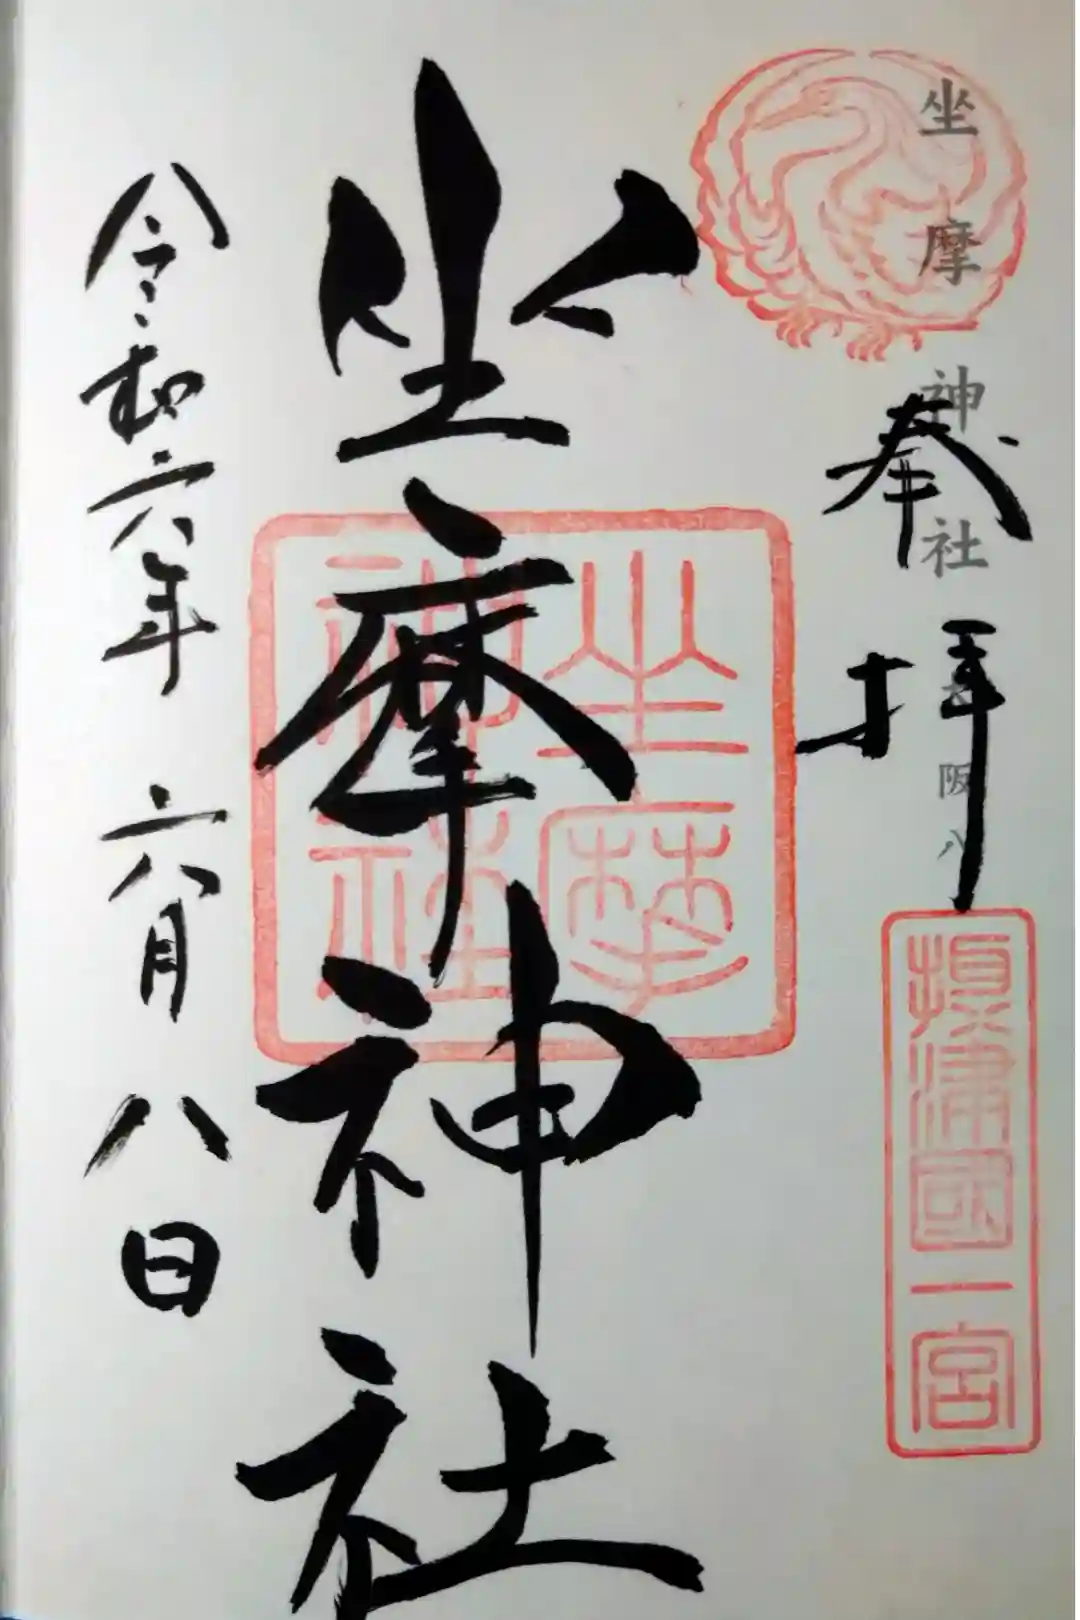 坐摩神社
奉拝
攝津國一宮
坐摩神社
坐摩神社
令和六年六月八日